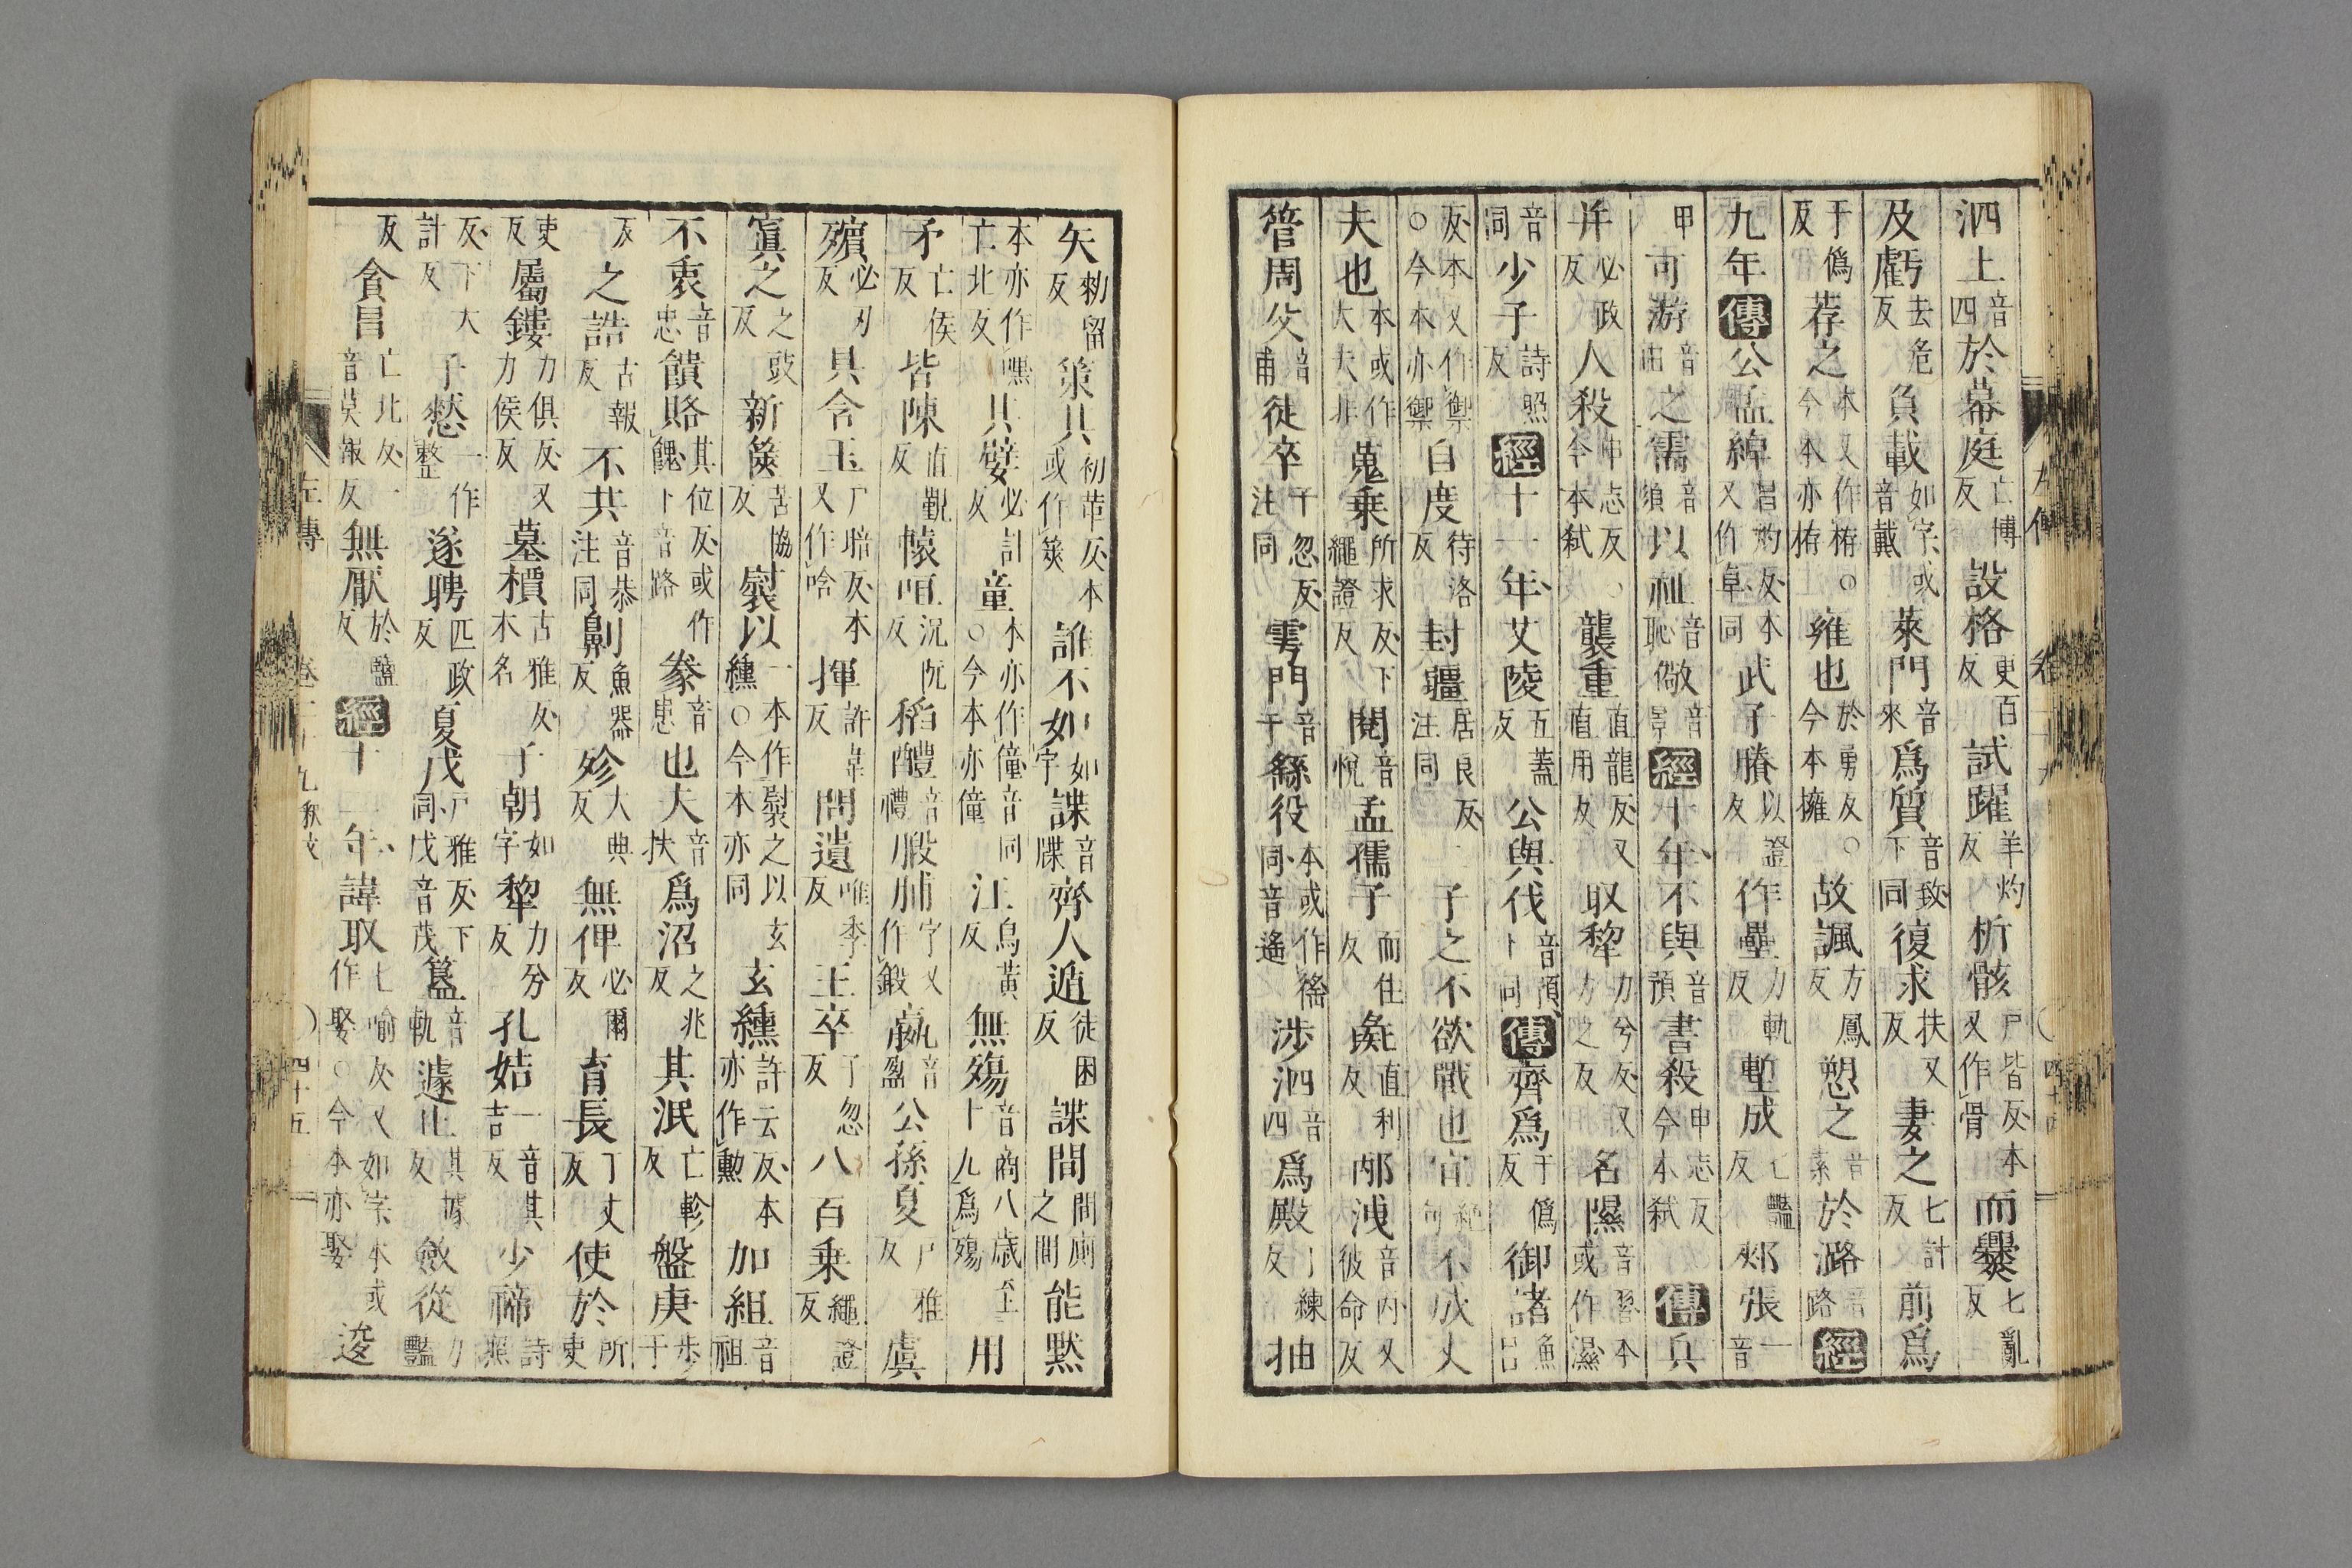 泗上音四於幕庭亡博反設格更百反試躍羊灼反析骸戸皆反本又作骨而爨七亂反
及虧去危反負載如字或音戴萊門音來爲質音致下同復求扶又反妻之七計反前爲
于僞反荐之本又作栫○今本亦栫雍也於勇反○今本擁故諷方鳳反愬之音素於潞音路經
九年傳公孟綽昌灼反本又作卓同武子賸以證反作壘力軌反塹成七豔反郟張一音
甲可游音由之需音須以祉音恥儆音景經十年不與音預書殺申志反今本弑傳兵
并必政反人殺申志反○今本弑襲重直龍反又直用反取犂力兮反又力之反名隰音習本或作濕
音同少子詩照反經十一年艾陵五蓋反公與伐音預下同傳齊爲于僞反御諸魚呂
反本又作禦○今本亦禦自度待洛反封疆居良反注同二子之不欲戰也宜絶句不成丈
夫也本或作大夫非蒐乗所求反下繩證反閱音悅孟孺子而住反彘直利反邴洩音丙又彼命反
管周父音甫徒卒子忽反注同雩門音于繇役本或作徭同音遙渉泗音四爲殿丁練反抽
左傳 四十四
矢勑留反策其初革反本或作筴誰不如如字諜音牒齊人遁徒困反諜間間廁之間能黙
本亦作嘿亡北反其嬖必計反童本亦作僮音同○今本亦僮汪烏黃反無殤音商八歲至十九爲殤用
矛亡侯反皆陳直覲反轅咺況阮反稻醴音禮腶脯字又作鍛嬴音盈公孫夏戸雅反虞
殯必刃反具含玉戸暗反本又作唅揮許韋反問遺唯季反王卒子忽反八百乗繩證反
寘之之豉反新篋苦協反褽以一本作褽之以玄纁○今本亦同玄纁許云反本亦作勳加組音祖
不衷音忠饋賂其位反或作餽下音路豢音患也夫音扶爲沼之兆反其泯亡軫反盤庚步干
反之誥古報反不共音恭注同劓魚器反殄大典反無俾必爾反育長丁丈反使於所吏
吏反屬鏤力俱反又力侯反墓檟古雅反木名子朝如字犂力兮反孔姞一音其吉反少禘詩照
反下大計反子憖一作整遂聘匹政反夏戊戸雅反下同戊音茂簋音軌遽止其據反斂從力豔
反貪冒亡北反一音莫報反無厭於豔反經十二年諱取七喩反又如字本或作娶○今本亦娶逡
左傳 卷二十九 攷 四十五